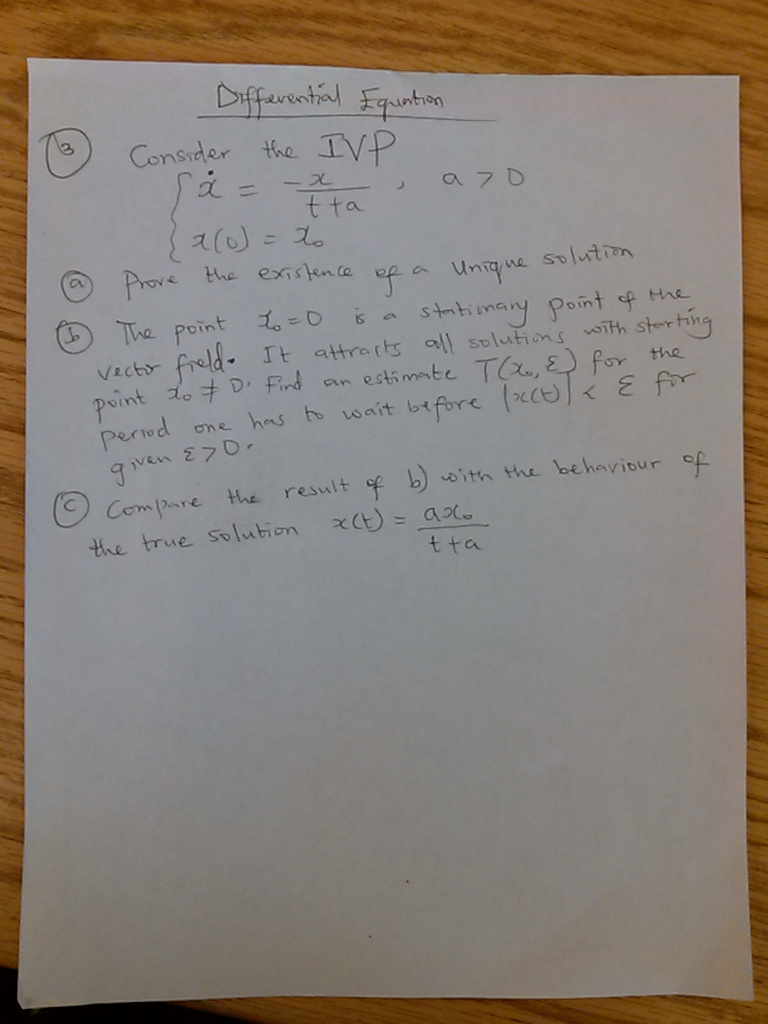 Differential Equation
③ Consider the IVP
{ ẋ = -x/(t+a) , a > 0
x(0) = x₀
ⓐ Prove the existence of a unique solution
ⓑ The point x₀=0 is a stationary point of the
vector field. It attracts all solutions with starting
point x₀ ≠ 0. Find an estimate T(x₀, ε) for the
period one has to wait before |x(t)| < ε for
given ε>0.
ⓒ Compare the result of b) with the behaviour of
the true solution x(t) = ax₀/(t+a)